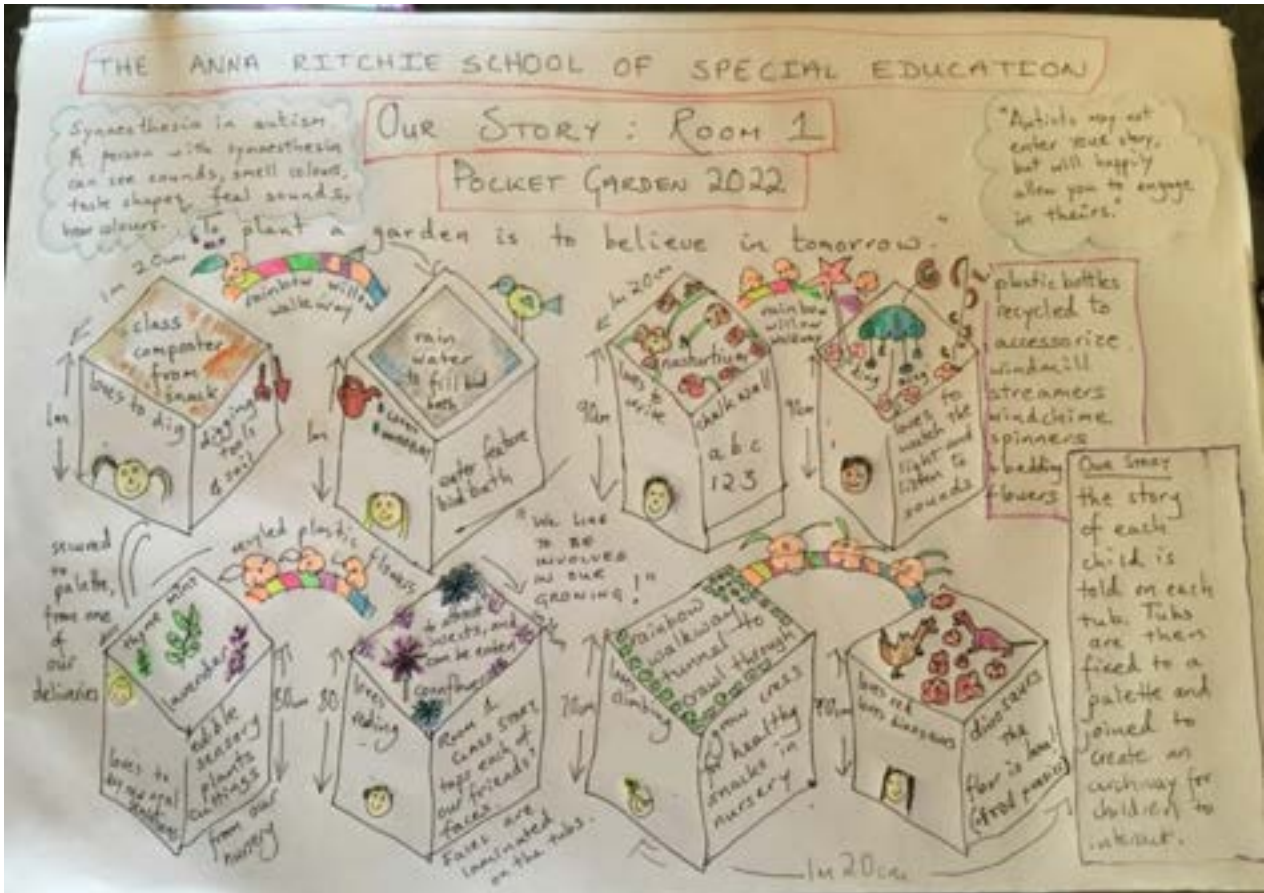 THE ANNA RITCHIE SCHOOL OF SPECIAL EDUCATION
OUR STORY : ROOM 1
POCKET GARDEN 2022
Synaesthesia in autism
A person with synaesthesia
can see sounds, smell colours,
taste shapes, feel sounds,
hear colours.
"Autists may not
enter your story,
but will happily
allow you to engage
in theirs."
"To plant a garden is to believe in tomorrow."
1m
20cm
rainbow willow
walkway
class
composter
from
snack
loves to dig
digging
tools
& soil
1m
rain
water
to fill bird
bath
loves
water feature
bird bath
1m
1m 20cm
nasturtium
loves to
chalk wall
a b c
1 2 3
90cm
rainbow
willow
walkway
loves to
watch the
light and
listen to
sounds
90cm
plastic bottles
recycled to
accessorize
windmill
streamers
windchime
spinners
bedding
flowers
OUR STORY
the story
of each
child is
told on each
tub. Tubs
are then
fixed to a
palette and
joined to
create an
archway for
children to
interact.
secured
to
palette,
from one
of
our
deliveries
recycled plastic flowers
"WE LIKE
TO BE
INVOLVED
IN OUR
GROWING!"
thyme mint
lavender
loves to
edible
sensory
plants
cuttings
from our
nursery
80cm
to attract
insects, and
can be eaten
cornflower
loves
Room 1
class story
tops each of
our friends'
faces.
Faces are
laminated
on the tubs.
80
rainbow
walkway
tunnel to
crawl through
loves
climbing
grow cress
for healthy
snacks in
nursery
70cm
loves red
loves dinosaurs
dinosaurs
the
floor is lava!
1m 20cm